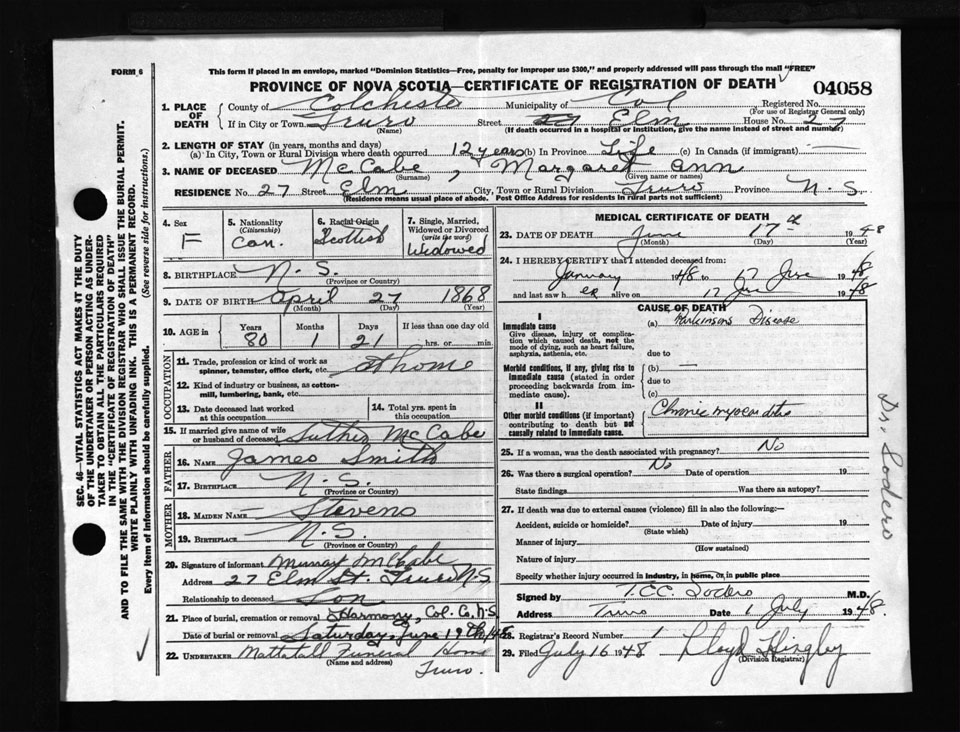 FORM 6
This form if placed in an envelope, marked "Dominion Statistics—Free, penalty for improper use $300," and properly addressed will pass through the mail "FREE"
PROVINCE OF NOVA SCOTIA—CERTIFICATE OF REGISTRATION OF DEATH
04058
1. PLACE OF DEATH
County of Colchester Municipality of Col Registered No.
(For use of Registrar General only)
If in City or Town Truro Street 27 Elm House No. 27
(Name) (If death occurred in a hospital or institution, give the name instead of street and number)
2. LENGTH OF STAY (in years, months and days)
(a) In City, Town or Rural Division where death occurred 12 years (b) In Province Life (c) In Canada (if immigrant) —
3. NAME OF DECEASED McCabe, Margaret Ann
(Surname) (Given name or names)
RESIDENCE No. 27 Street Elm City, Town or Rural Division Truro Province N.S.
(Residence means usual place of abode. Post Office Address for residents in rural parts not sufficient)
4. Sex
F
5. Nationality
(Citizenship)
Can.
6. Racial Origin
Scottish
7. Single, Married, Widowed or Divorced
(write the word)
Widowed
8. BIRTHPLACE N.S.
(Province or Country)
9. DATE OF BIRTH April 27 1868
(Month) (Day) (Year)
10. AGE in
Years Months Days If less than one day old
80 1 21 hrs. or min.
OCCUPATION
11. Trade, profession or kind of work as spinner, teamster, office clerk, etc. at home
12. Kind of industry or business, as cotton-mill, lumbering, bank, etc.
13. Date deceased last worked at this occupation
14. Total yrs. spent in this occupation
15. If married give name of wife or husband of deceased Luther McCabe
FATHER
16. NAME James Smith
17. BIRTHPLACE N.S.
(Province or Country)
MOTHER
18. MAIDEN NAME Stevens
19. BIRTHPLACE N.S.
(Province or Country)
20. Signature of informant Murray McCabe
Address 27 Elm St. Truro N.S.
Relationship to deceased Son
21. Place of burial, cremation or removal Harmony, Col. Co. N.S.
Date of burial or removal Saturday, June 19th/48
22. UNDERTAKER Mattatall Funeral Home
(Name and address)
Truro.
MEDICAL CERTIFICATE OF DEATH
23. DATE OF DEATH June 17th 1948
(Month) (Day) (Year)
24. I HEREBY CERTIFY that I attended deceased from:
January 1948 to 17 June 1948
and last saw her alive on 17 June 1948
CAUSE OF DEATH
I
Immediate cause
Give disease, injury or complication which caused death, not the mode of dying, such as heart failure, asphyxia, asthenia, etc.
(a) Parkinsons Disease
due to
Morbid conditions, if any, giving rise to immediate cause (stated in order proceeding backwards from immediate cause).
(b) —
due to
(c)
II
Other morbid conditions (if important) contributing to death but not causally related to immediate cause.
Chronic myocarditis
25. If a woman, was the death associated with pregnancy? No
26. Was there a surgical operation? No Date of operation 19
State findings Was there an autopsy?
27. If death was due to external causes (violence) fill in also the following:—
Accident, suicide or homicide? Date of injury 19
(State which)
Manner of injury
(How sustained)
Nature of injury
Specify whether injury occurred in industry, in home, or in public place
Signed by M.D.
Address Truro Date 1 July 1948.
28. Registrar's Record Number 1
29. Filed July 16 1948
(Division Registrar)
SEC. 46—VITAL STATISTICS ACT MAKES IT THE DUTY
OF THE UNDERTAKER OR PERSON ACTING AS UNDER-
TAKER TO OBTAIN ALL THE PARTICULARS REQUIRED
IN THE "CERTIFICATE OF REGISTRATION OF DEATH"
AND TO FILE THE SAME WITH THE DIVISION REGISTRAR WHO SHALL ISSUE THE BURIAL PERMIT.
WRITE PLAINLY WITH UNFADING INK. THIS IS A PERMANENT RECORD.
Every item of information should be carefully supplied. (See reverse side for instructions.)
Dr. Sodero